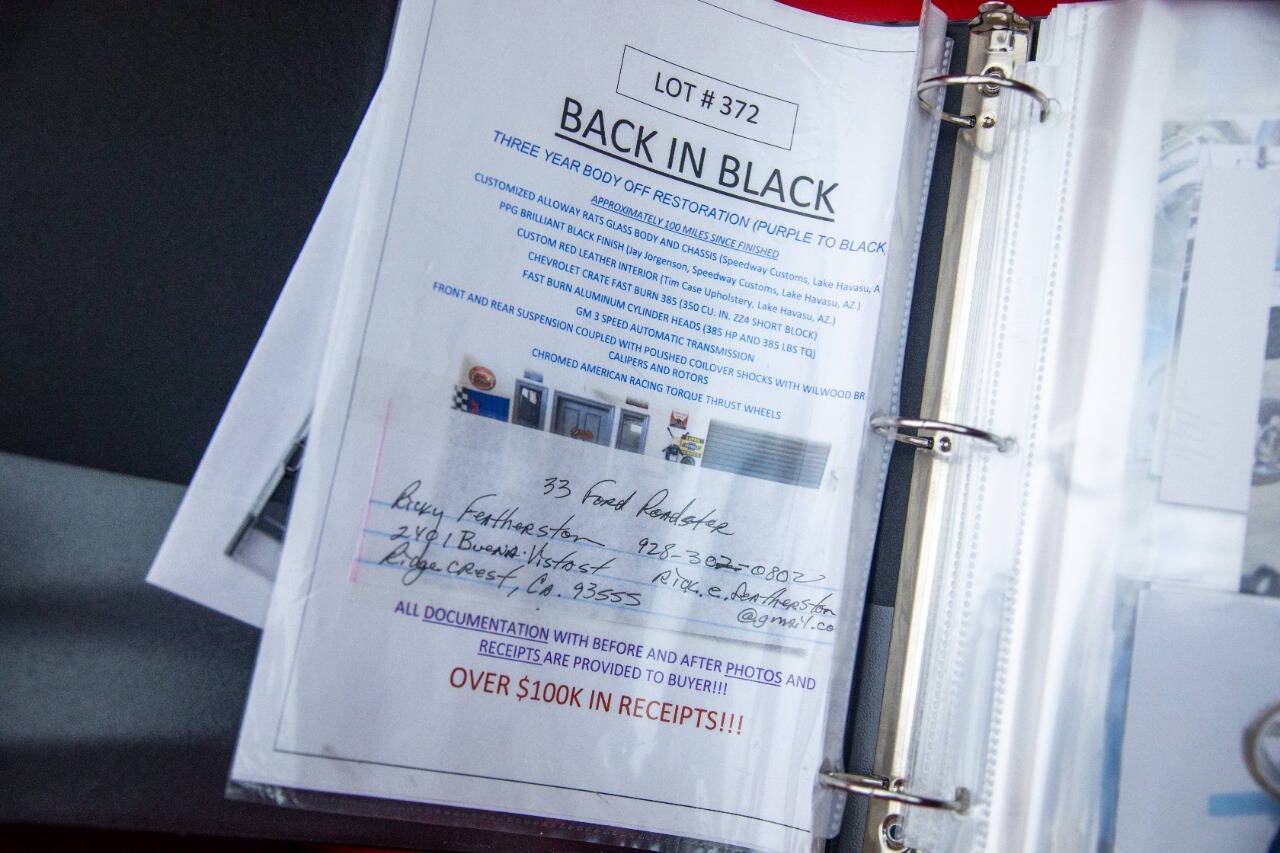 LOT # 372
BACK IN BLACK
THREE YEAR BODY OFF RESTORATION (PURPLE TO BLACK
APPROXIMATELY 100 MILES SINCE FINISHED
CUSTOMIZED ALLOWAY RATS GLASS BODY AND CHASSIS (Speedway Customs, Lake Havasu, A
PPG BRILLIANT BLACK FINISH (Jay Jorgenson, Speedway Customs, Lake Havasu, AZ.)
CUSTOM RED LEATHER INTERIOR (Tim Case Upholstery, Lake Havasu, AZ.)
CHEVROLET CRATE FAST BURN 385 (350 CU. IN. ZZ4 SHORT BLOCK)
FAST BURN ALUMINUM CYLINDER HEADS (385 HP AND 385 LBS TQ)
GM 3 SPEED AUTOMATIC TRANSMISSION
FRONT AND REAR SUSPENSION COUPLED WITH POLISHED COILOVER SHOCKS WITH WILWOOD BR
CALIPERS AND ROTORS
CHROMED AMERICAN RACING TORQUE THRUST WHEELS
33 Ford Roadster
Ricky Featherston 928-302-0802
2401 Buena Vista st Rick.e.featherston
Ridgecrest, CA. 93555 @gmail.co
ALL DOCUMENTATION WITH BEFORE AND AFTER PHOTOS AND
RECEIPTS ARE PROVIDED TO BUYER!!!
OVER $100K IN RECEIPTS!!!